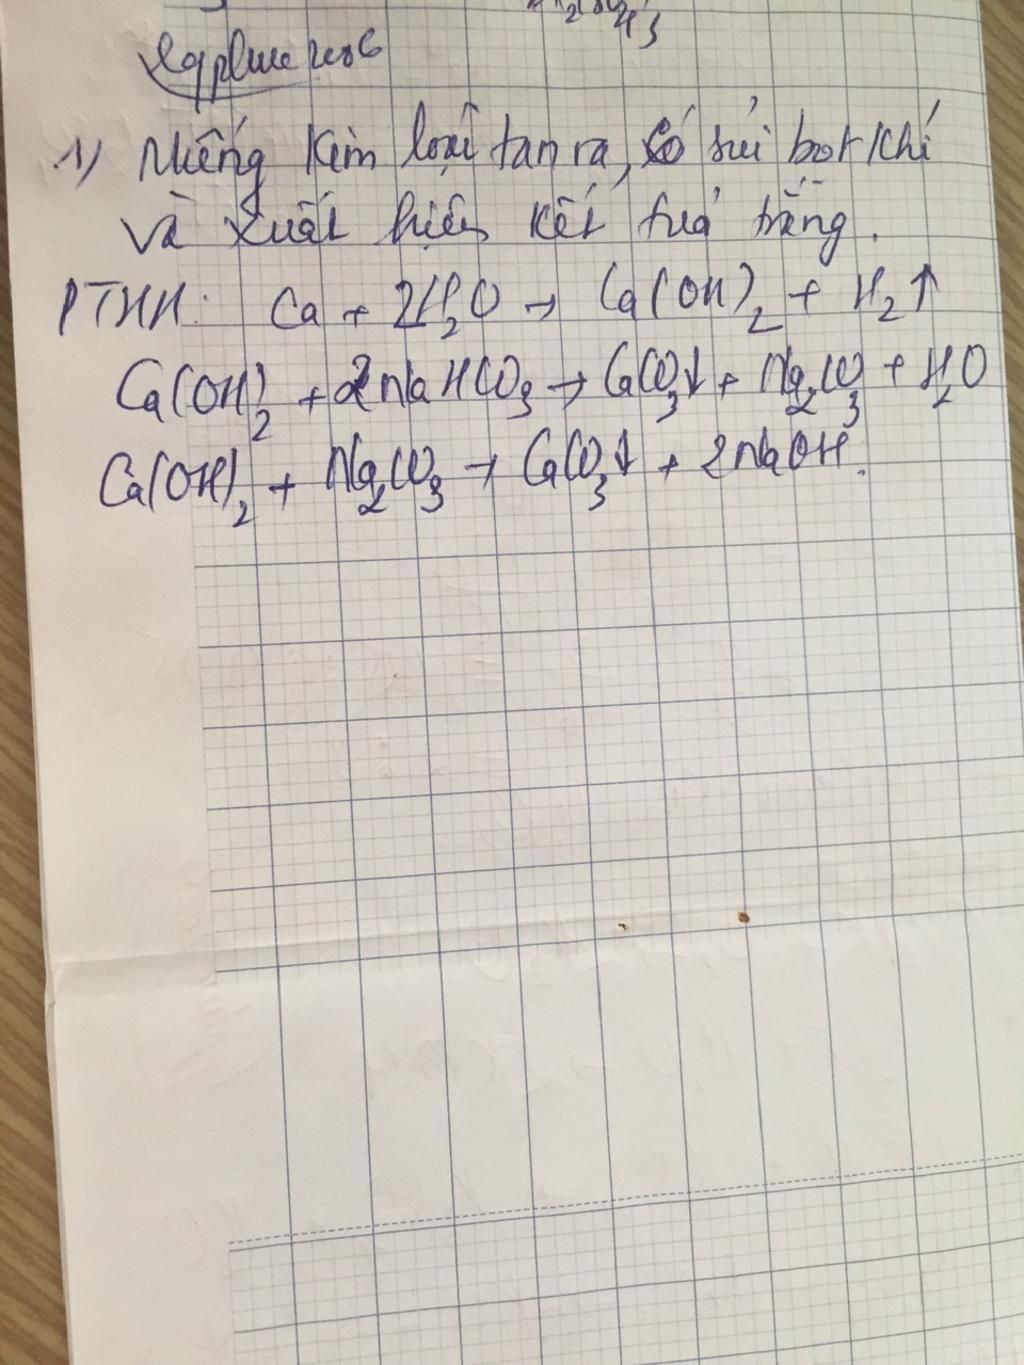 1) Miếng kim loại tan ra, có sủi bọt khí
và xuất hiện kết tủa trắng.
PTHH: Ca + 2H₂O → Ca(OH)₂ + H₂↑
Ca(OH)₂ + 2NaHCO₃ → CaCO₃↓ + Na₂CO₃ + H₂O
Ca(OH)₂ + Na₂CO₃ → CaCO₃↓ + 2NaOH.